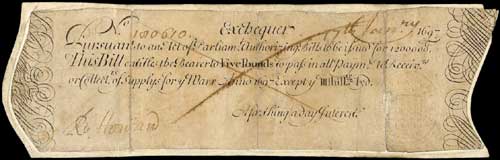 No. 100610. Exchequer 17th Jan:ry 1697
Pursuant to an Act of Parliamt. Authorizing Bills to be issued for 1200000.
This Bill entitles the Bearer to Five Pounds to pass in all Paymts. to Receivrs.
or Collectrs. of Supplys for ye Warr Anno 1697 Except ye
A farthing a day Interest
Howard